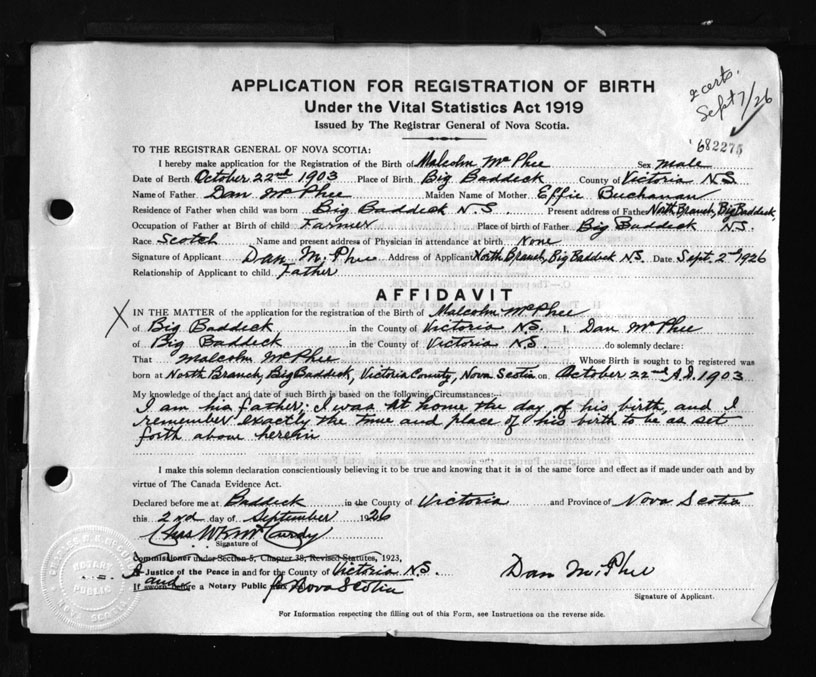 APPLICATION FOR REGISTRATION OF BIRTH
Under the Vital Statistics Act 1919
Issued by The Registrar General of Nova Scotia.
2 certs.
Sept 7/26
682275
TO THE REGISTRAR GENERAL OF NOVA SCOTIA:
I hereby make application for the Registration of the Birth of Malcolm McPhee Sex male
Date of Birth October 22nd 1903 Place of Birth Big Baddeck County of Victoria N.S.
Name of Father Dan McPhee Maiden Name of Mother Effie Buchanan
Residence of Father when child was born Big Baddeck N.S. Present address of Father North Branch, Big Baddeck,
Occupation of Father at Birth of child Farmer Place of birth of Father Big Baddeck N.S.
Race Scotch Name and present address of Physician in attendance at birth None
Signature of Applicant Dan McPhee Address of Applicant North Branch, Big Baddeck N.S. Date Sept. 2nd 1926
Relationship of Applicant to child Father
AFFIDAVIT
X IN THE MATTER of the application for the registration of the Birth of Malcolm McPhee
of Big Baddeck in the County of Victoria N.S. I, Dan McPhee
of Big Baddeck in the County of Victoria N.S. do solemnly declare:
That Malcolm McPhee Whose Birth is sought to be registered was
born at North Branch, Big Baddeck, Victoria County, Nova Scotia on October 22nd A.D. 1903
My knowledge of the fact and date of such Birth is based on the following Circumstances:-
I am his father; I was at home the day of his birth, and I
remember exactly the time and place of his birth to be as set
forth above herein
I make this solemn declaration conscientiously believing it to be true and knowing that it is of the same force and effect as if made under oath and by
virtue of The Canada Evidence Act.
Declared before me at Baddeck in the County of Victoria and Province of Nova Scotia
this 2nd day of September 1926
Signature of
Commissioner under Section 8, Chapter 38, Revised Statutes, 1923,
A Justice of the Peace in and for the County of Victoria N.S.
and
If sworn before a Notary Public Nova Scotia
Dan McPhee
Signature of Applicant.
NOTARY
PUBLIC
NOVA SCOTIA
For Information respecting the filling out of this Form, see Instructions on the reverse side.